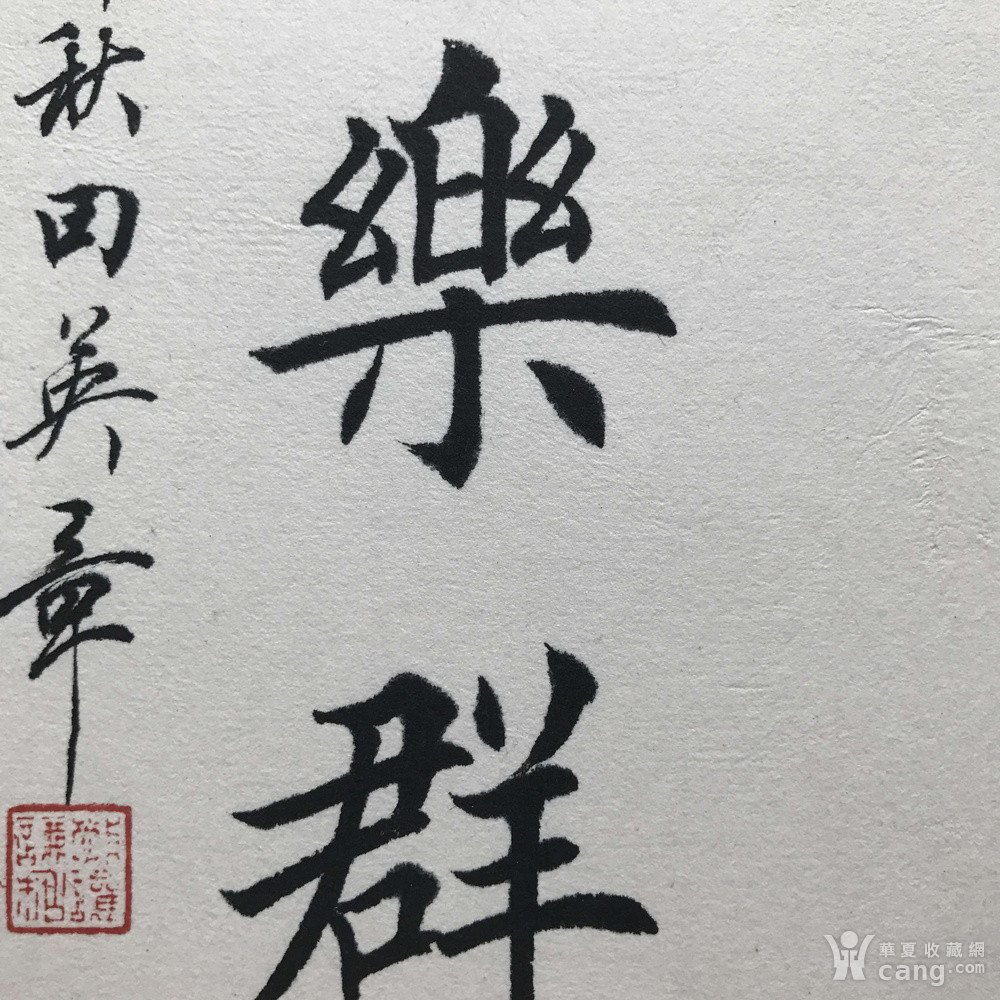 樂群
秋田英章
華夏收藏網
cang.com